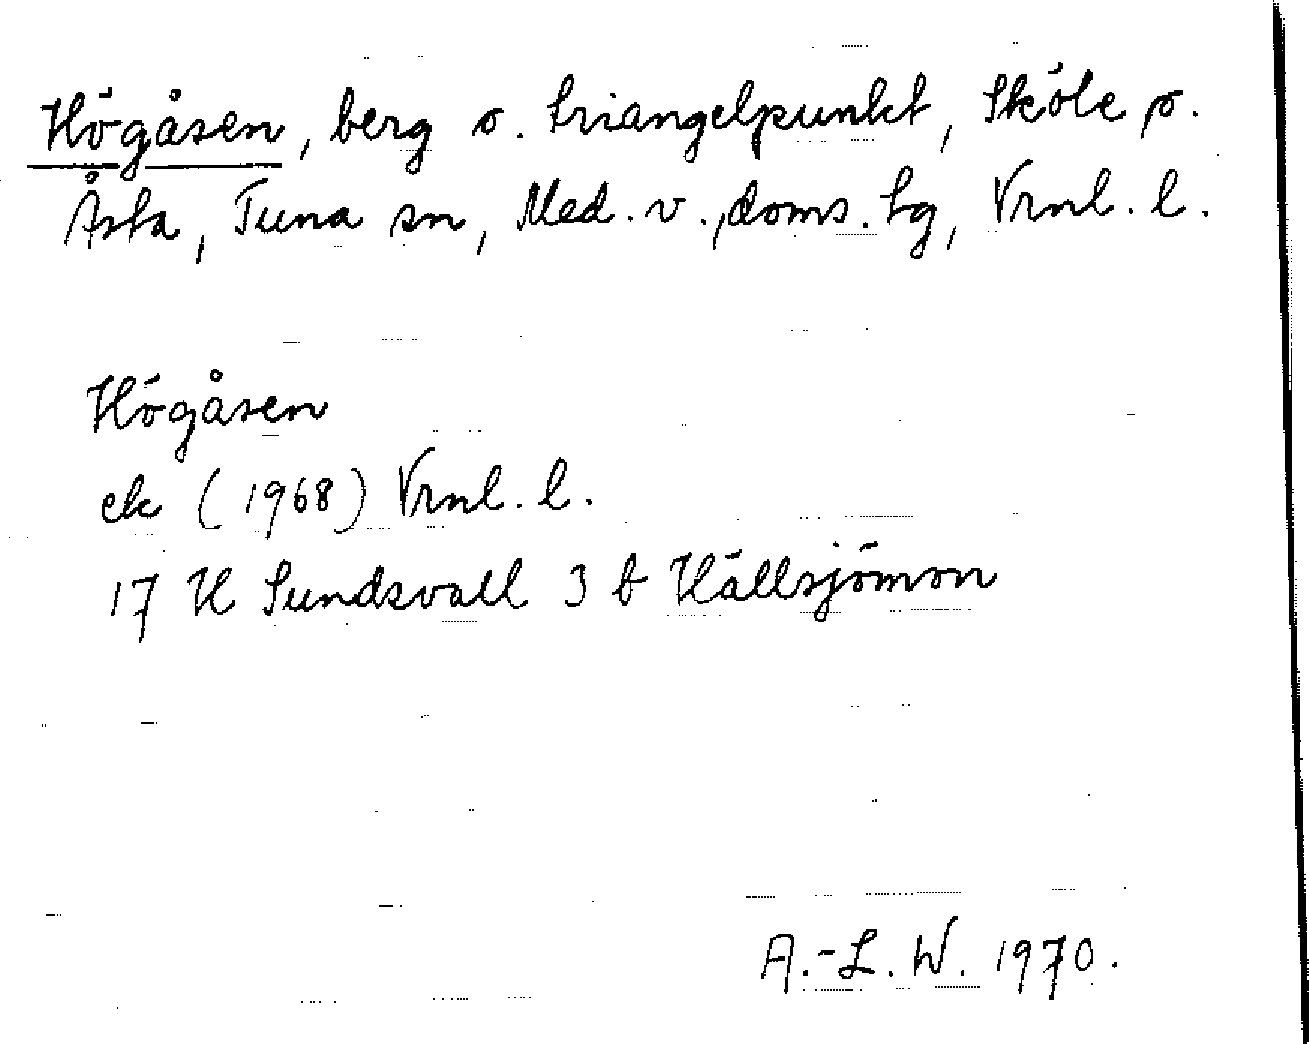 Högåsen, berg o. triangelpunkt, Sköle o.
Åsta, Tuna sn, Med. v., doms. tg, Vrnl. l.
Högåsen
ek (1968) Vrnl. l.
17 H Sundsvall 3 b Hällsjömon
A.-L. W. 1970.